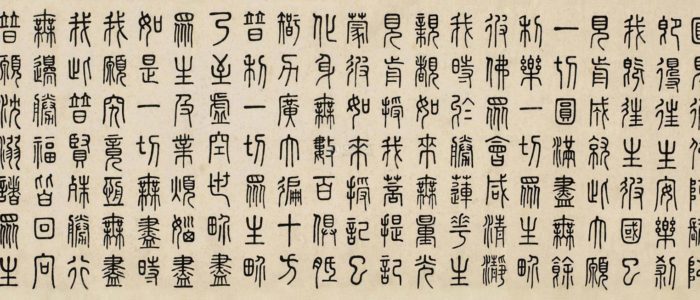 即得往生安樂剎
我既往生彼國已
見前成就此大願
一切圓滿盡無餘
利樂一切眾生界
彼佛眾會咸清淨
我時於勝蓮華生
親覩如來無量光
見前授我菩提記
蒙彼如來授記已
化身無數百俱胝
智力廣大徧十方
普利一切眾生界
乃至虛空世界盡
眾生及業煩惱盡
如是一切無盡時
我願究竟恆無盡
我此普賢殊勝行
無邊勝福皆回向
普願沈溺諸眾生